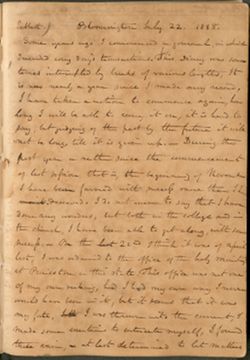 Sabbath Bloomington July 22. 1838.
Some years ago I commenced a journal, in which
I noted my day's transactions. This diary was some
times interrupted by breaks of various lengths. It
is now nearly a year since I made any record,
I have taken a notion to commence again, how
long I will be able to carry it on, it is hard to
say; but judging of the past by the future it will
not be long till it is given up. — During the
past year, or rather since the commencement
of last session that is, the beginning of November
I have been favored with much more than I
deserved. I do not mean to say that I have
done any wonders, but both in the college and in
the church, I have been able to get along, with some
success. On the last of April I think it was of
last, I was ordained to the office of the holy ministry
at Princeton in this State. This office was not one
of my own seeking, had I had my own way I never
would have been in it, but it seems that it was
my fate, I was thrown into the current, &
made some exertions to extricate myself, I found
these vain, at last determined to let matters